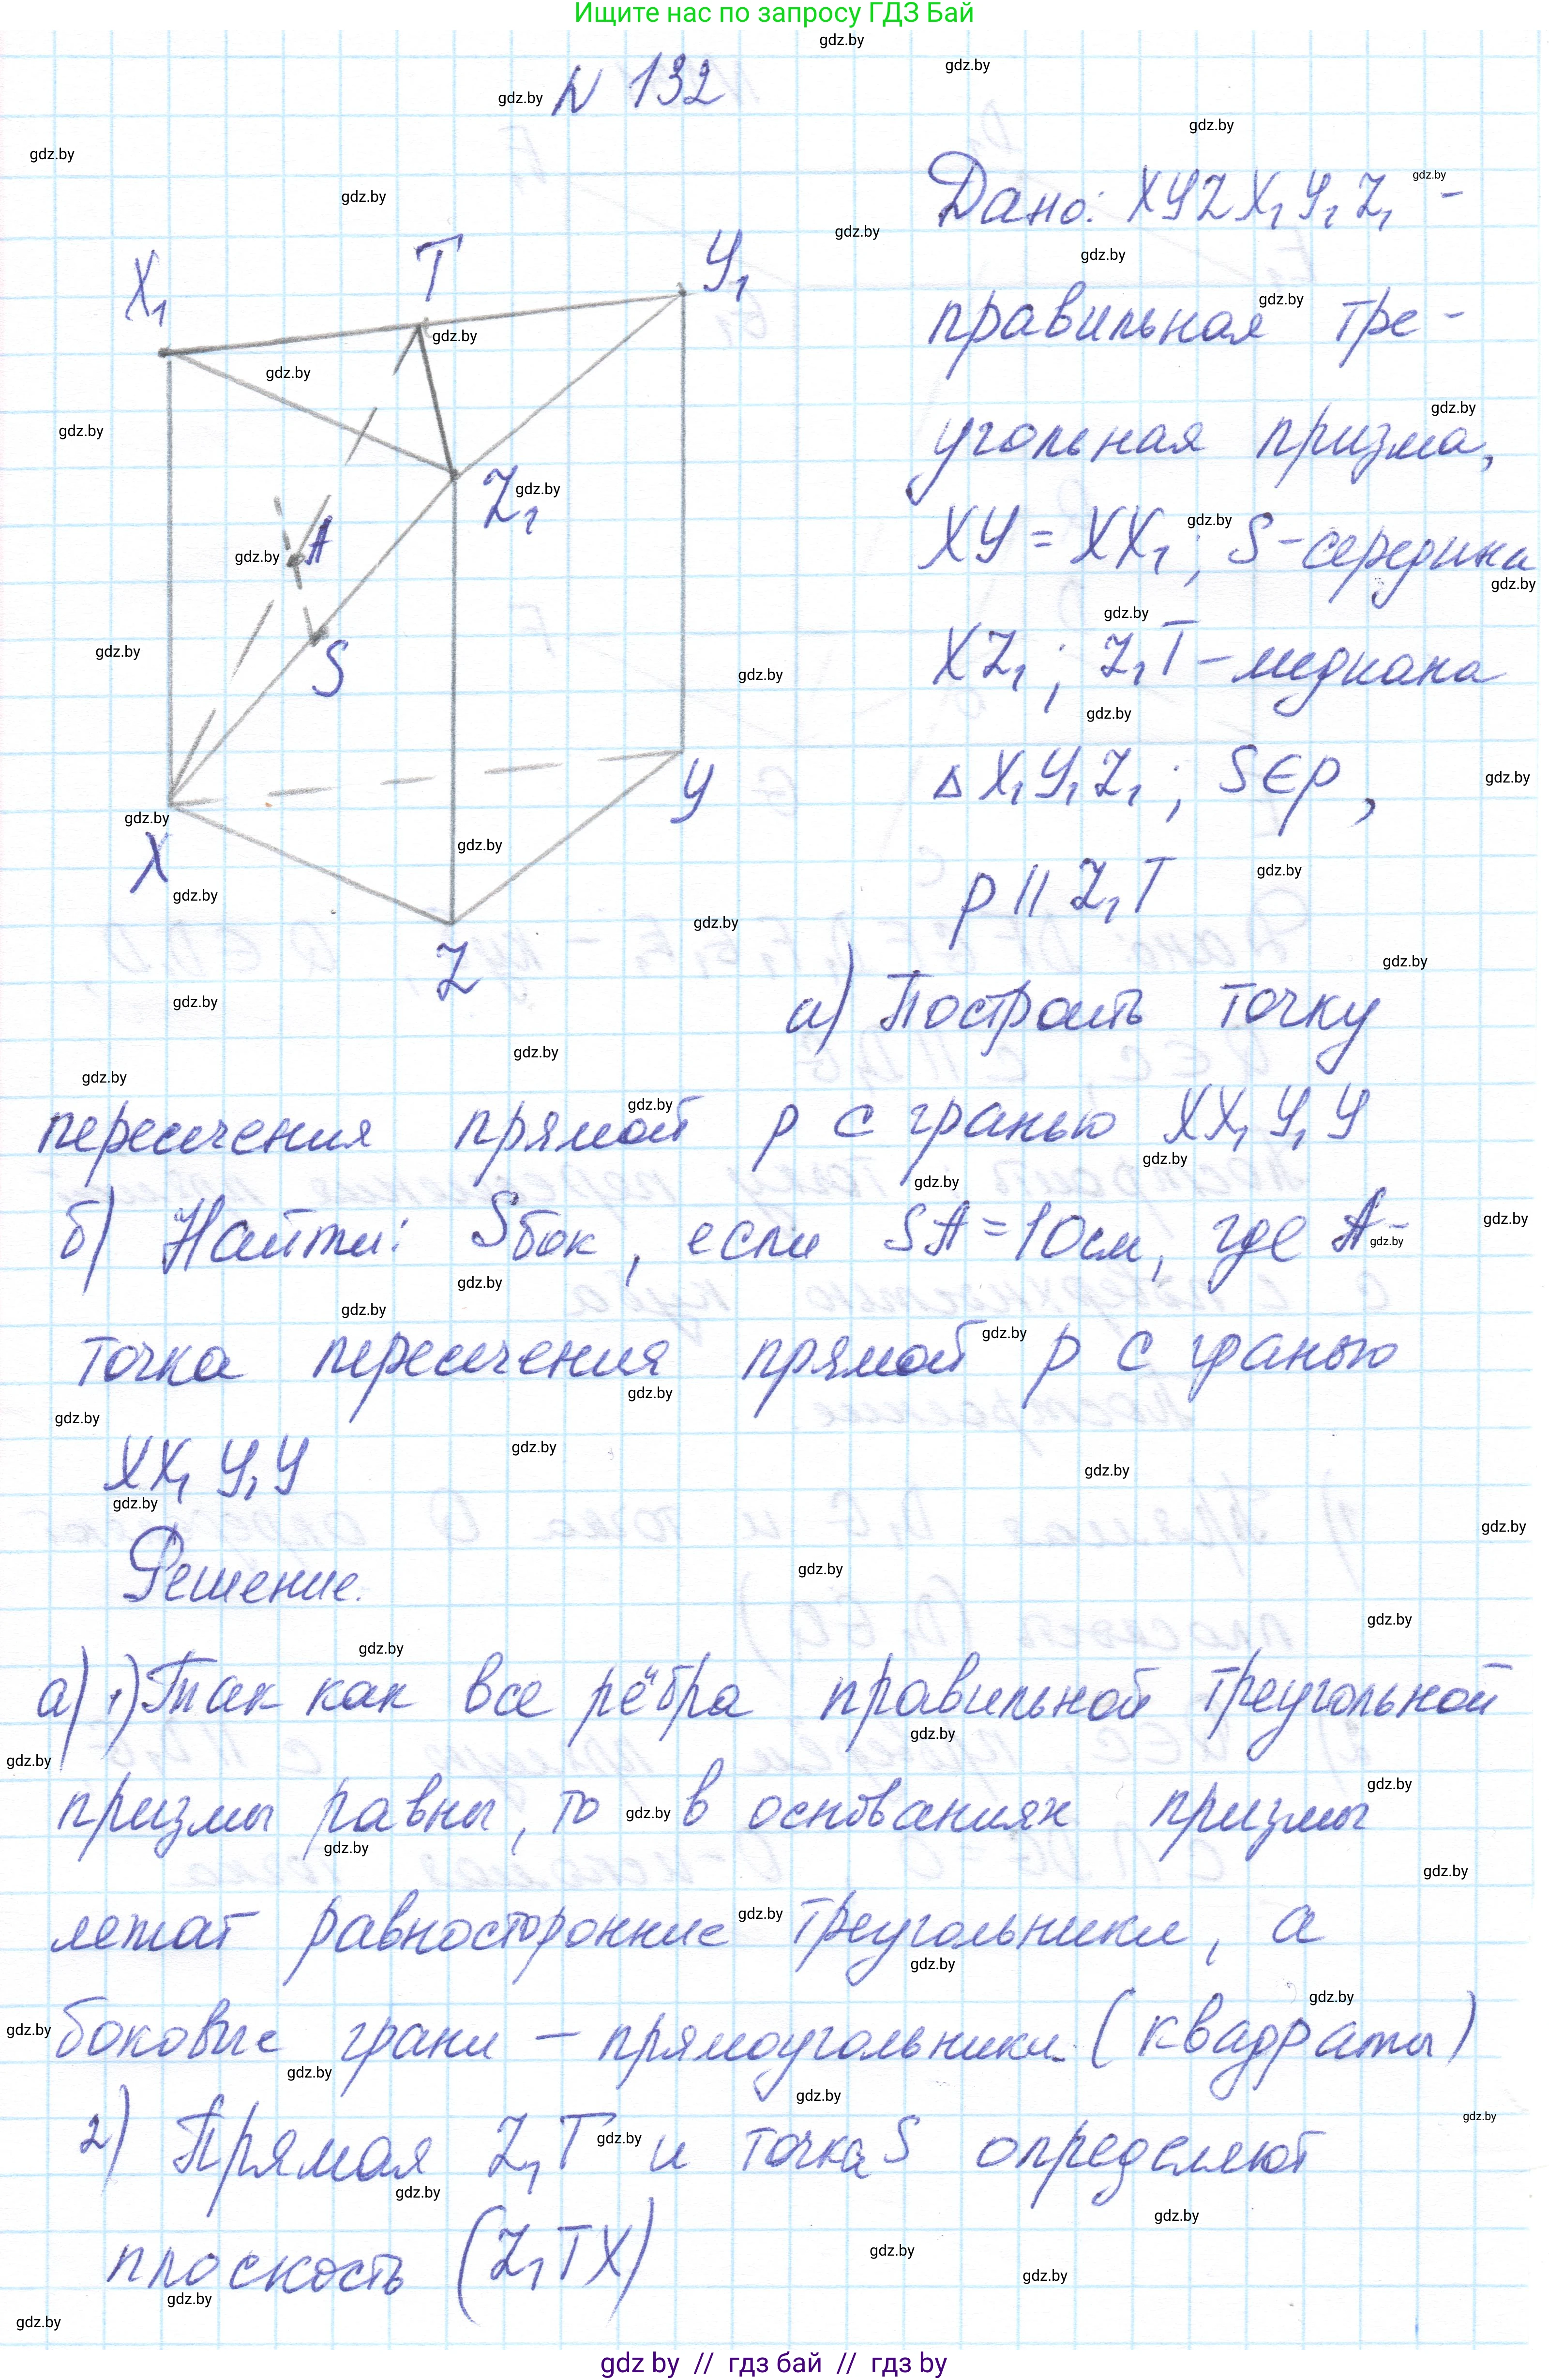 Ищите нас по запросу ГДЗ Бай
N 132
Дано: XYZX₁Y₁Z₁ -
правильная тре-
угольная призма,
XY = XX₁; S-середина
XZ₁; Z₁T-медиана
△X₁Y₁Z₁; S∈p,
p || Z₁T
X₁
T
Y₁
Z₁
A
S
X
Y
Z
а) Построить точку
пересечения прямой p с гранью XX₁Y₁Y
б) Найти: Sбок, если SA=10см, где A-
точка пересечения прямой p с гранью
XX₁Y₁Y
Решение.
а) 1) Так как все рёбра правильной треугольной
призмы равны, то в основаниях призмы
лежат равносторонние треугольники, а
боковые грани - прямоугольники (квадраты)
2) Прямая Z₁T и точка S определяют
плоскость (Z₁TX)
gdz by // гдз бай // гдз by